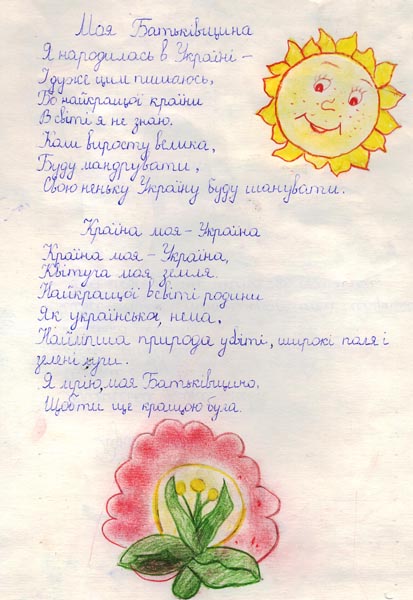 Моя Батьківщина
Я народилась в Україні –
І дуже цим пишаюсь,
Бо найкращої країни
В світі я не знаю.
Коли виросту велика,
Буду мандрувати,
Свою неньку Україну буду шанувати.
Країна моя – Україна
Країна моя – Україна,
Квітуча моя земля.
Найкращої в світі родини
Як української, нема.
Наймиліша природа у світі, широкі поля і
зелені луги.
Я мрію, моя Батьківщино,
Щоб ти ще кращою була.